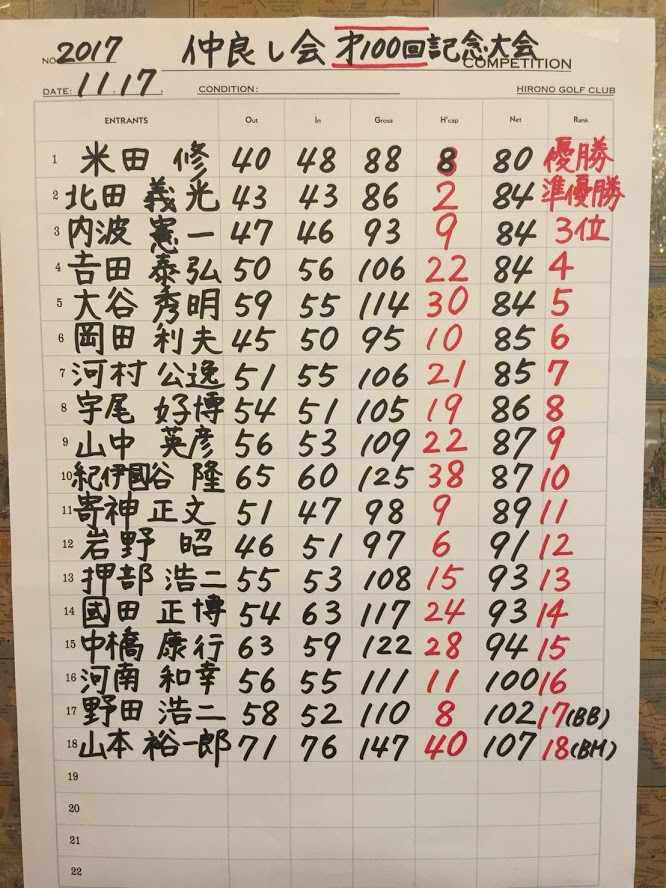 2017 仲良し会 才100回記念大会
NO. COMPETITION
DATE: 11.17. CONDITION: HIRONO GOLF CLUB
ENTRANTS Out In Gross H'cap Net Rank
1 米田 修 40 48 88 8 80 優勝
2 北田 義光 43 43 86 2 84 準優勝
3 内波 憲一 47 46 93 9 84 3位
4 吉田 泰弘 50 56 106 22 84 4
5 大谷 秀明 59 55 114 30 84 5
6 岡田 利夫 45 50 95 10 85 6
7 河村 公逸 51 55 106 21 85 7
8 宇尾 好博 54 51 105 19 86 8
9 山中 英彦 56 53 109 22 87 9
10 紀伊國谷 隆 65 60 125 38 87 10
11 寄神 正文 51 47 98 9 89 11
12 岩野 昭 46 51 97 6 91 12
13 押部 浩二 55 53 108 15 93 13
14 國田 正博 54 63 117 24 93 14
15 中橋 康行 63 59 122 28 94 15
16 河南 和幸 56 55 111 11 100 16
17 野田 浩二 58 52 110 8 102 17(BB)
18 山本 裕一郎 71 76 147 40 107 18(BM)
19
20
21
22